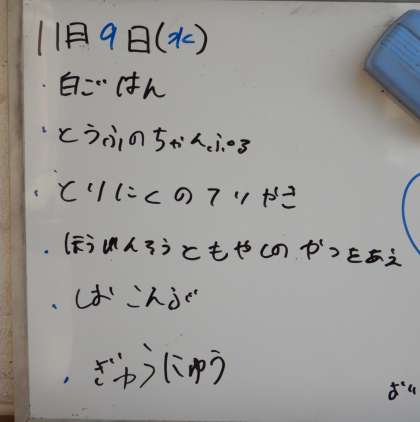 11月9日(水)
・白ごはん
・とうふのちゃんぷる
・とりにくのテリやき
・ほうれんそうともやしのかつおあえ
・しおこんぶ
・ぎゅうにゅう